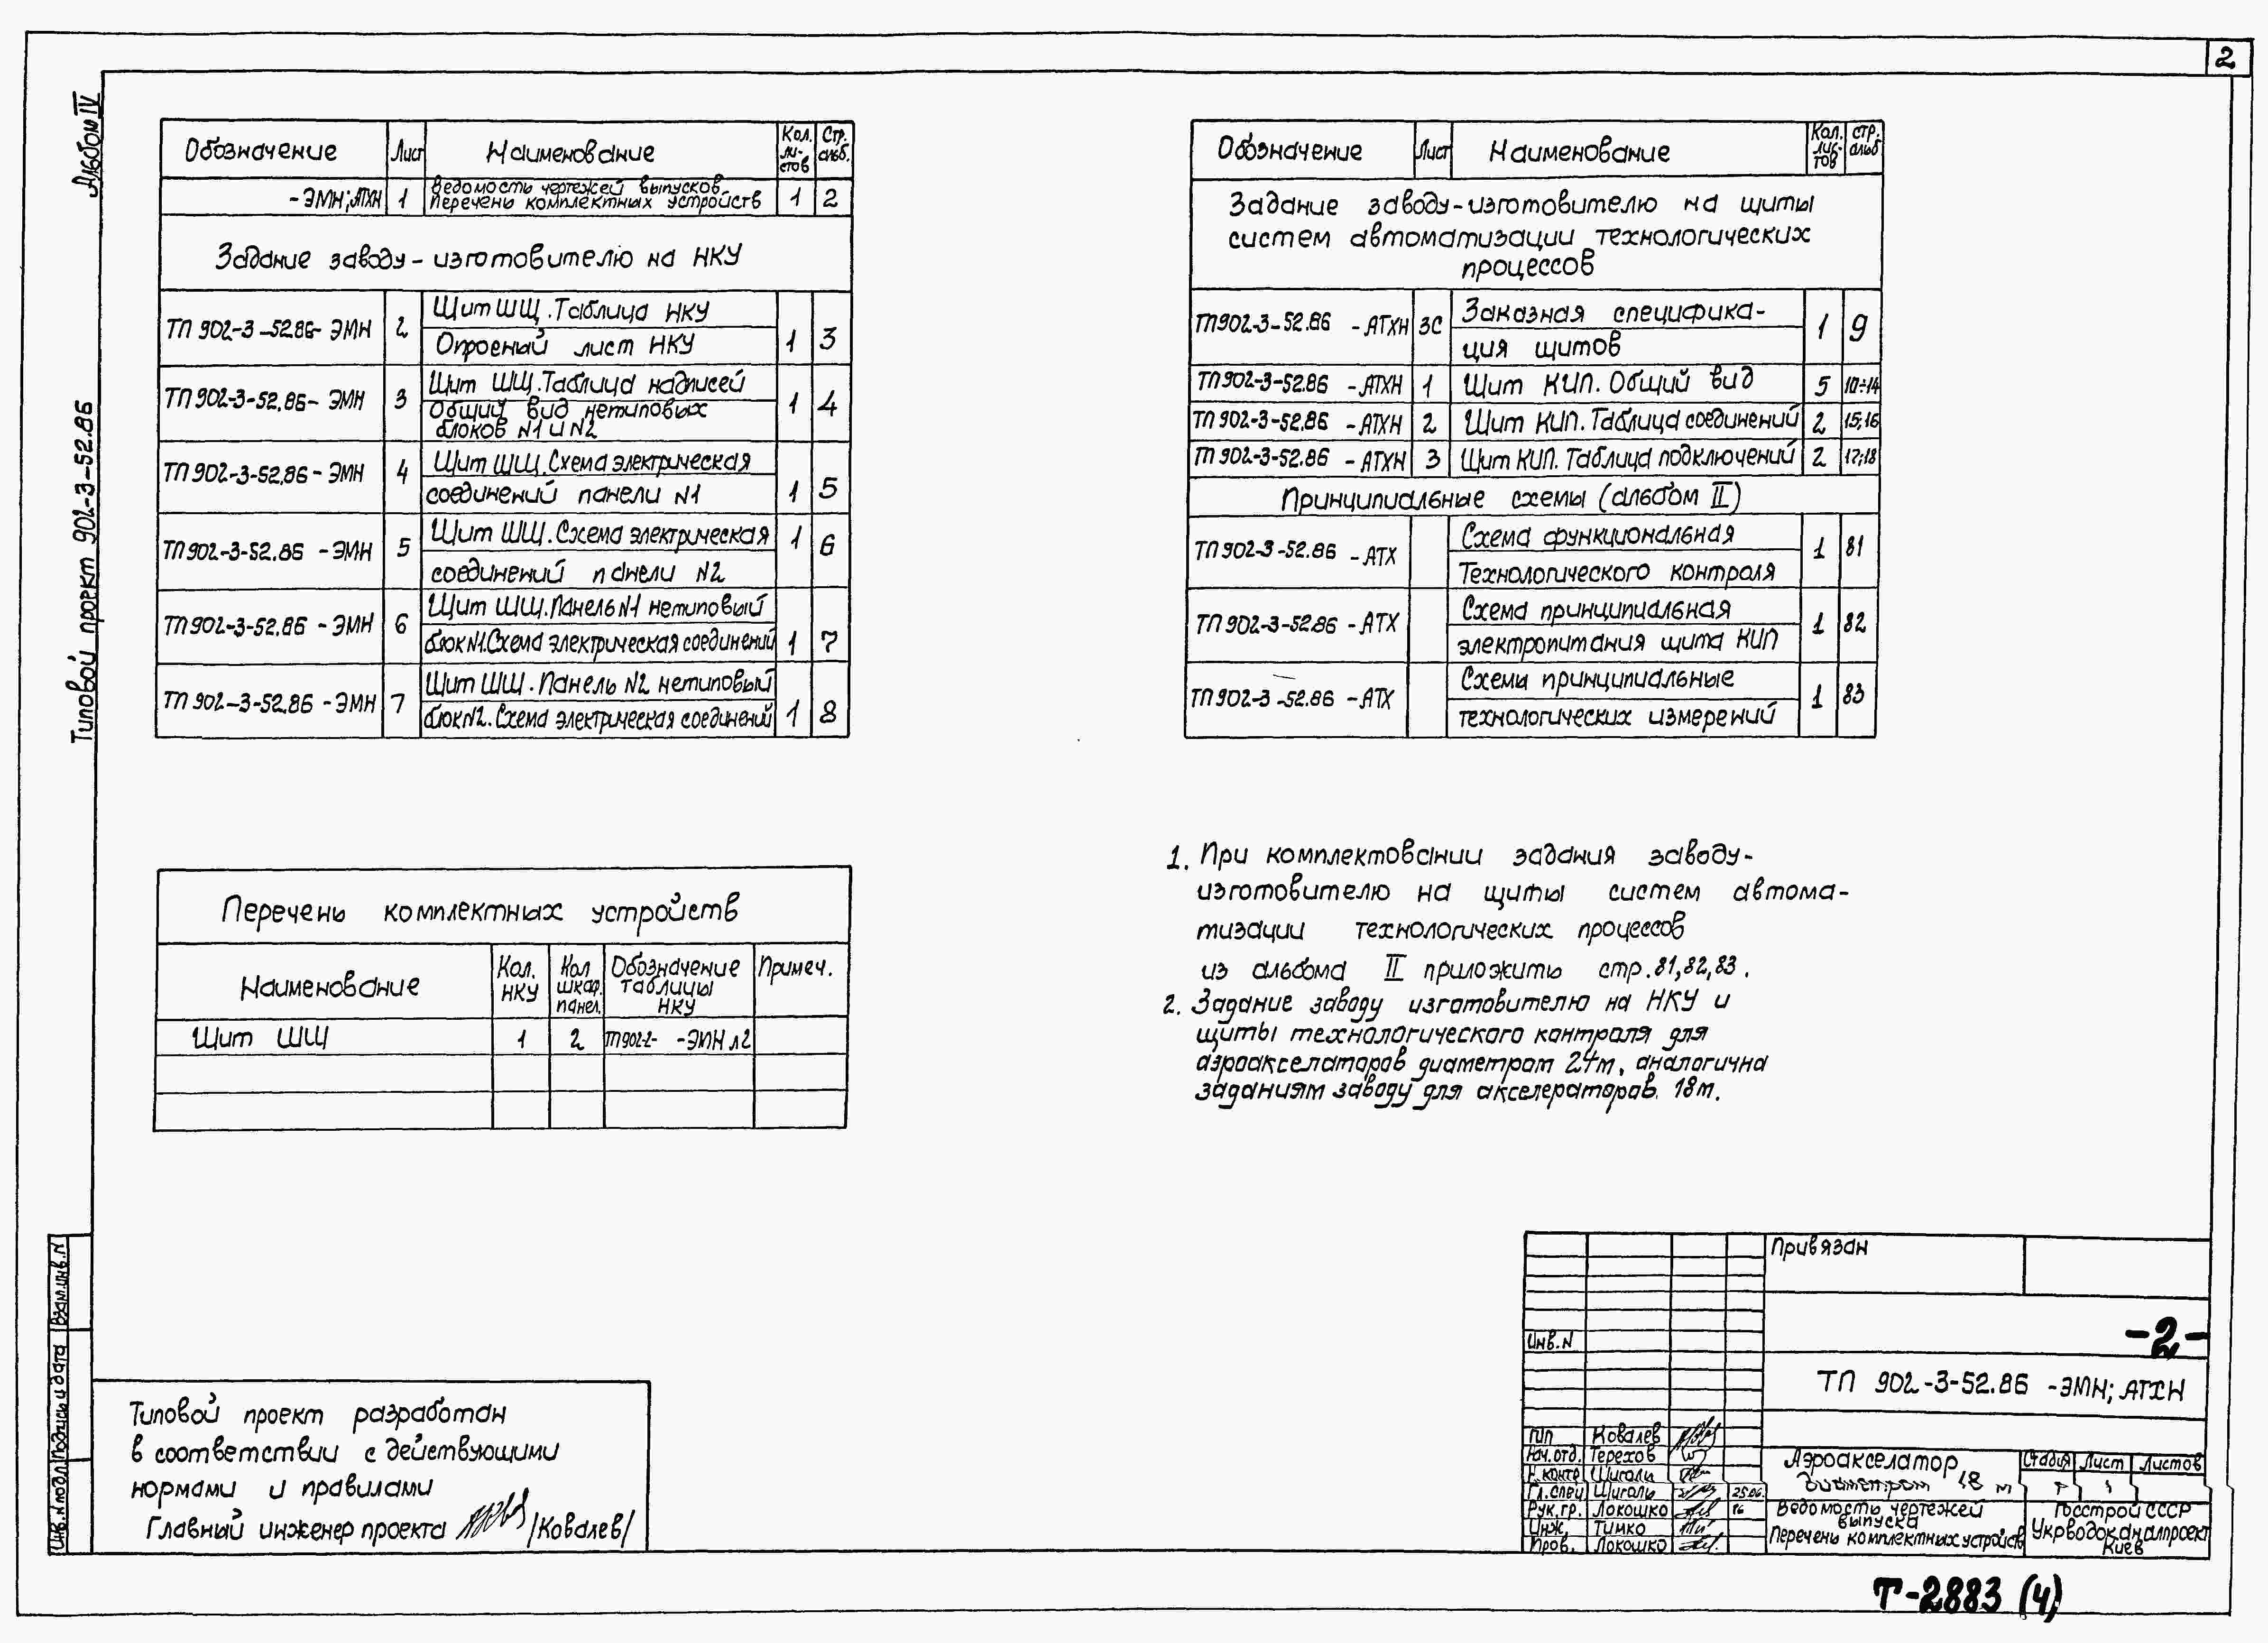 2
Альбом IV
Типовой проект 902-3-52.86
Обозначение Лист Наименование Кол. ли-стов Стр. альб.
-ЭМН; АТХН 1 Ведомость чертежей выпусков 1 2
Перечень комплектных устройств
Задание заводу-изготовителю на НКУ
ТП 902-3-52.86- ЭМН 2 Щит ШЩ. Таблица НКУ
Опросный лист НКУ 1 3
ТП 902-3-52.86- ЭМН 3 Щит ШЩ. Таблица надписей
Общий вид нетиповых 1 4
блоков N1 и N2
ТП 902-3-52.86- ЭМН 4 Щит ШЩ. Схема электрическая
соединений панели N1 1 5
ТП 902-3-52.86 -ЭМН 5 Щит ШЩ. Схема электрическая 1 6
соединений панели N2
ТП 902-3-52.86 -ЭМН 6 Щит ШЩ. Панель N1 нетиповый
блок N1. Схема электрическая соединений 1 7
ТП 902-3-52.86 -ЭМН 7 Щит ШЩ. Панель N2 нетиповый
блок N2. Схема электрическая соединений 1 8
Обозначение Лист Наименование Кол. лис-тов стр. альб
Задание заводу-изготовителю на щиты
систем автоматизации технологических
процессов
ТП 902-3-52.86 -АТХН 3С Заказная специфика- 1 9
ция щитов
ТП 902-3-52.86 -АТХН 1 Щит КИП. Общий вид 5 10÷14
ТП 902-3-52.86 -АТХН 2 Щит КИП. Таблица соединений 2 15;16
ТП 902-3-52.86 -АТХН 3 Щит КИП. Таблица подключений 2 17;18
Принципиальные схемы (альбом II)
ТП 902-3-52.86 -АТХ Схема функциональная 1 81
технологического контроля
ТП 902-3-52.86 -АТХ Схема принципиальная 1 82
электропитания щита КИП
ТП 902-3-52.86 -АТХ Схемы принципиальные 1 83
технологических измерений
Перечень комплектных устройств
Наименование Кол. НКУ Кол шкаф. панел. Обозначение таблицы НКУ Примеч.
Щит ШЩ 1 2 ТП902-2- -ЭМН л2
1. При комплектовании задания заводу-
изготовителю на щиты систем автома-
тизации технологических процессов
из альбома II приложить стр. 81,82,83.
2. Задание заводу изготовителю на НКУ и
щиты технологического контроля для
аэроакселаторов диаметром 24м, аналогична
заданиям заводу для акселераторов. 18м.
Взам.инв.N
Подпись и дата
Инв.N подл
Типовой проект разработан
в соответствии с действующими
нормами и правилами
Главный инженер проекта /Ковалев/
Привязан
Инв.N
-2-
ТП 902-3-52.86 -ЭМН; АТХН
ГИП Ковалев
Нач.отд. Терехов
Н.контр Шигаль
Гл.спец Шигаль 25.06.
Рук.гр. Локошко 86
Инж. Тимко
Пров. Локошко
Аэроакселатор
диаметром 18 м
Стадия Лист Листов
Т 1
Ведомость чертежей
выпуска
Перечень комплектных устройств
Госстрой СССР
Укрводоканалпроект
Киев
Т-2883 (4)